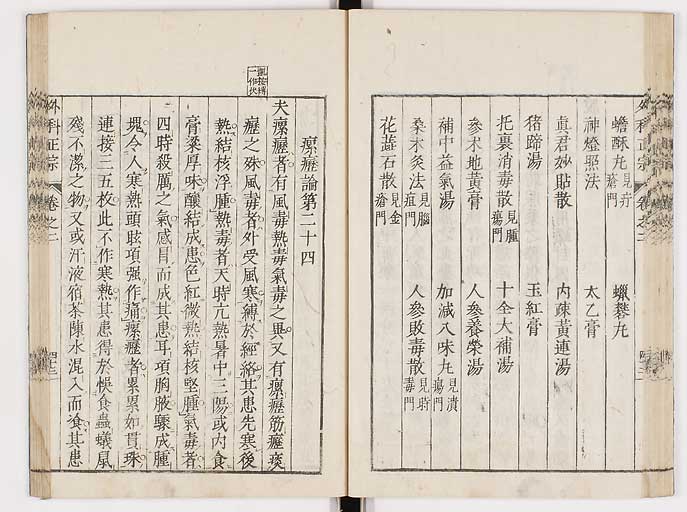 外科正宗 卷之二
蟾酥丸見疔瘡門 蠟礬丸
神燈照法 太乙膏
真君妙貼散 內疎黃連湯
猪蹄湯 玉紅膏
托裏消毒散見腫瘍門 十全大補湯
參朮地黃膏 人參養榮湯
補中益氣湯 加減八味丸見潰瘍門
桑木灸法見腦疽門 人參敗毒散見時毒門
花蕊石散見金瘡門
瘰癧論第二十四
夫瘰癧者有風毒熱毒氣毒之異又有瘰癧筋癧痰
癧之殊風毒者外受風寒縛於經絡其患先寒後
熱結核浮腫熱毒者天時亢熱暑中三陽或內食
膏粱厚味釀結成患色紅微熱結核堅腫氣毒者
四時殺厲之氣感冒而成其患耳項胸腋驟成腫
塊令人寒熱頭眩項强作痛瘰癧者累累如貫珠
連接三五枚此不作寒熱其患得於悞食蟲蟻鼠
殘不潔之物又或汗液宿茶陳水混入而食其患
外科正宗 卷之二